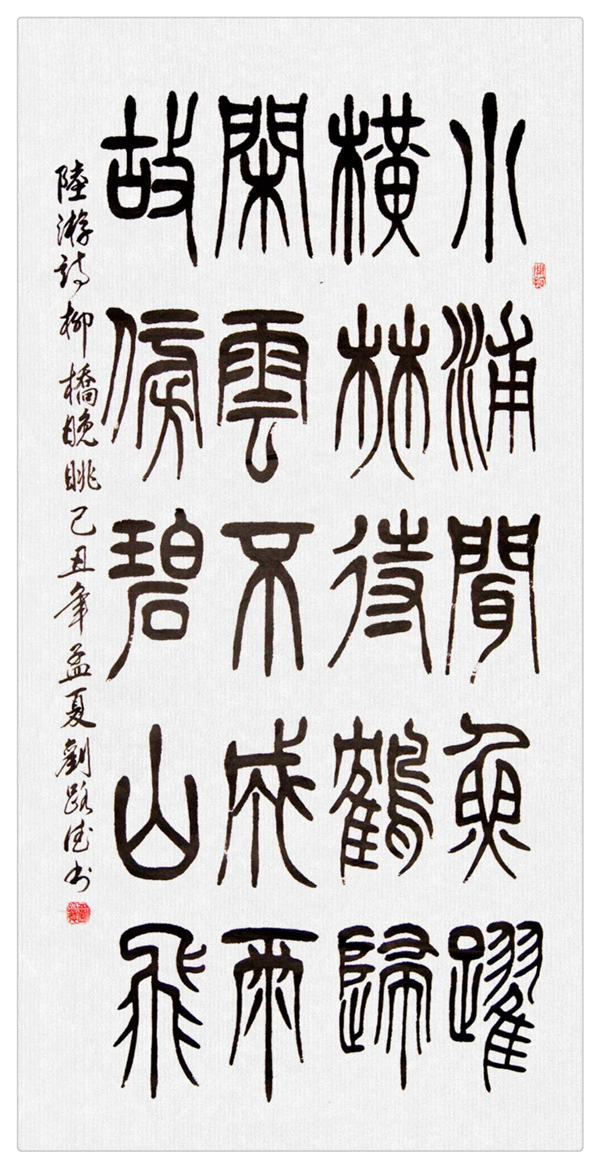 小浦聞魚躍
橫林待鶴歸
閑雲不成雨
故傍碧山飛
陸游詩柳橋晚眺己丑年孟夏劉路德書